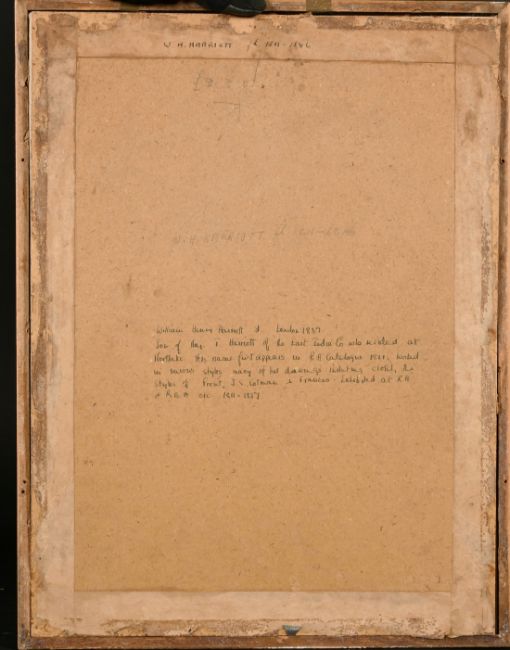 W. H. HARRIOTT fl. 1811-1846
W. H. HARRIOTT fl 1811-1846
William Henry Harriott d. London 1839
Son of Maj. T. Harriott of the East India Co who resided at
Mortlake. His name first appears in R.A Catalogue 1811, worked
in various styles many of his drawings imitating closely the
styles of Prout, J S Cotman & Francia. Exhibited at R.A
& R.B.A etc. 1811-1837